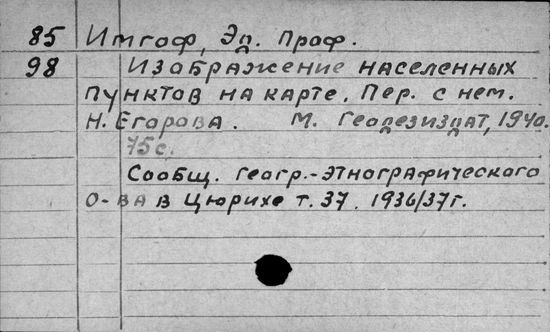 85 Имгоф, Эд. Проф.
98 Изображение населенных
пунктов на карте. Пер. с нем.
Н. Егорова. М. Геодезиздат, 1940.
75с.
Сообщ. геогр.-этнографического
о-ва в Цюрихе т. 37. 1936/37г.